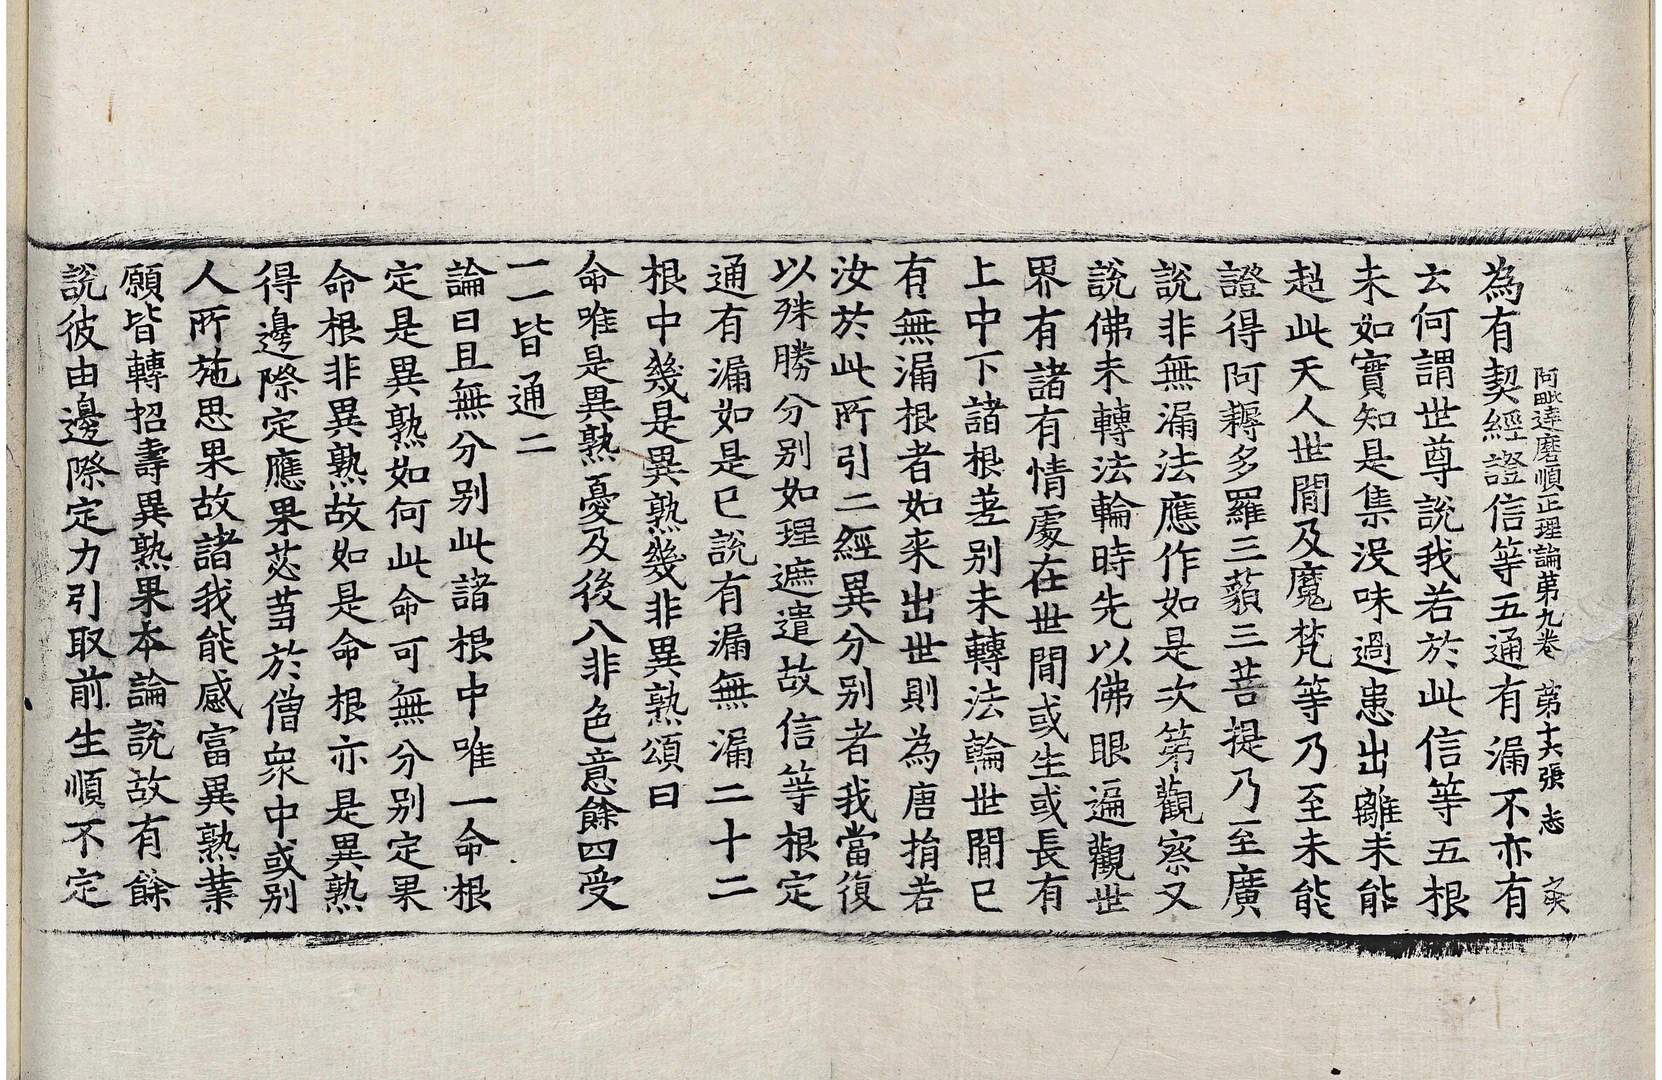 阿毗達磨順正理論第九卷　第十六張　志
為有契經證信等五通有漏不亦有
云何謂世尊說我若於此信等五根
未如實知是集沒味過患出離未能
超此天人世間及魔梵等乃至未能
證得阿耨多羅三藐三菩提乃至廣
說非無漏法應作如是次第觀察又
說佛未轉法輪時先以佛眼遍觀世
界有諸有情處在世間或生或長有
上中下諸根差别未轉法輪世間已
有無漏根者如來出世則為唐捐若
汝於此所引二經異分别者我當復
以殊勝分别如理遮遣故信等根定
通有漏如是已說有漏無漏二十二
根中幾是異熟幾非異熟頌曰
命唯是異熟憂及後八非色意餘四受
一一皆通二
論曰且無分别此諸根中唯一命根
定是異熟如何此命可無分别定果
命根非異熟故如是命根亦是異熟
得邊際定應果苾芻於僧衆中或别
人所施思果故諸我能感富異熟業
願皆轉招壽異熟果本論說故有餘
說彼由邊際定力引取前生順不定